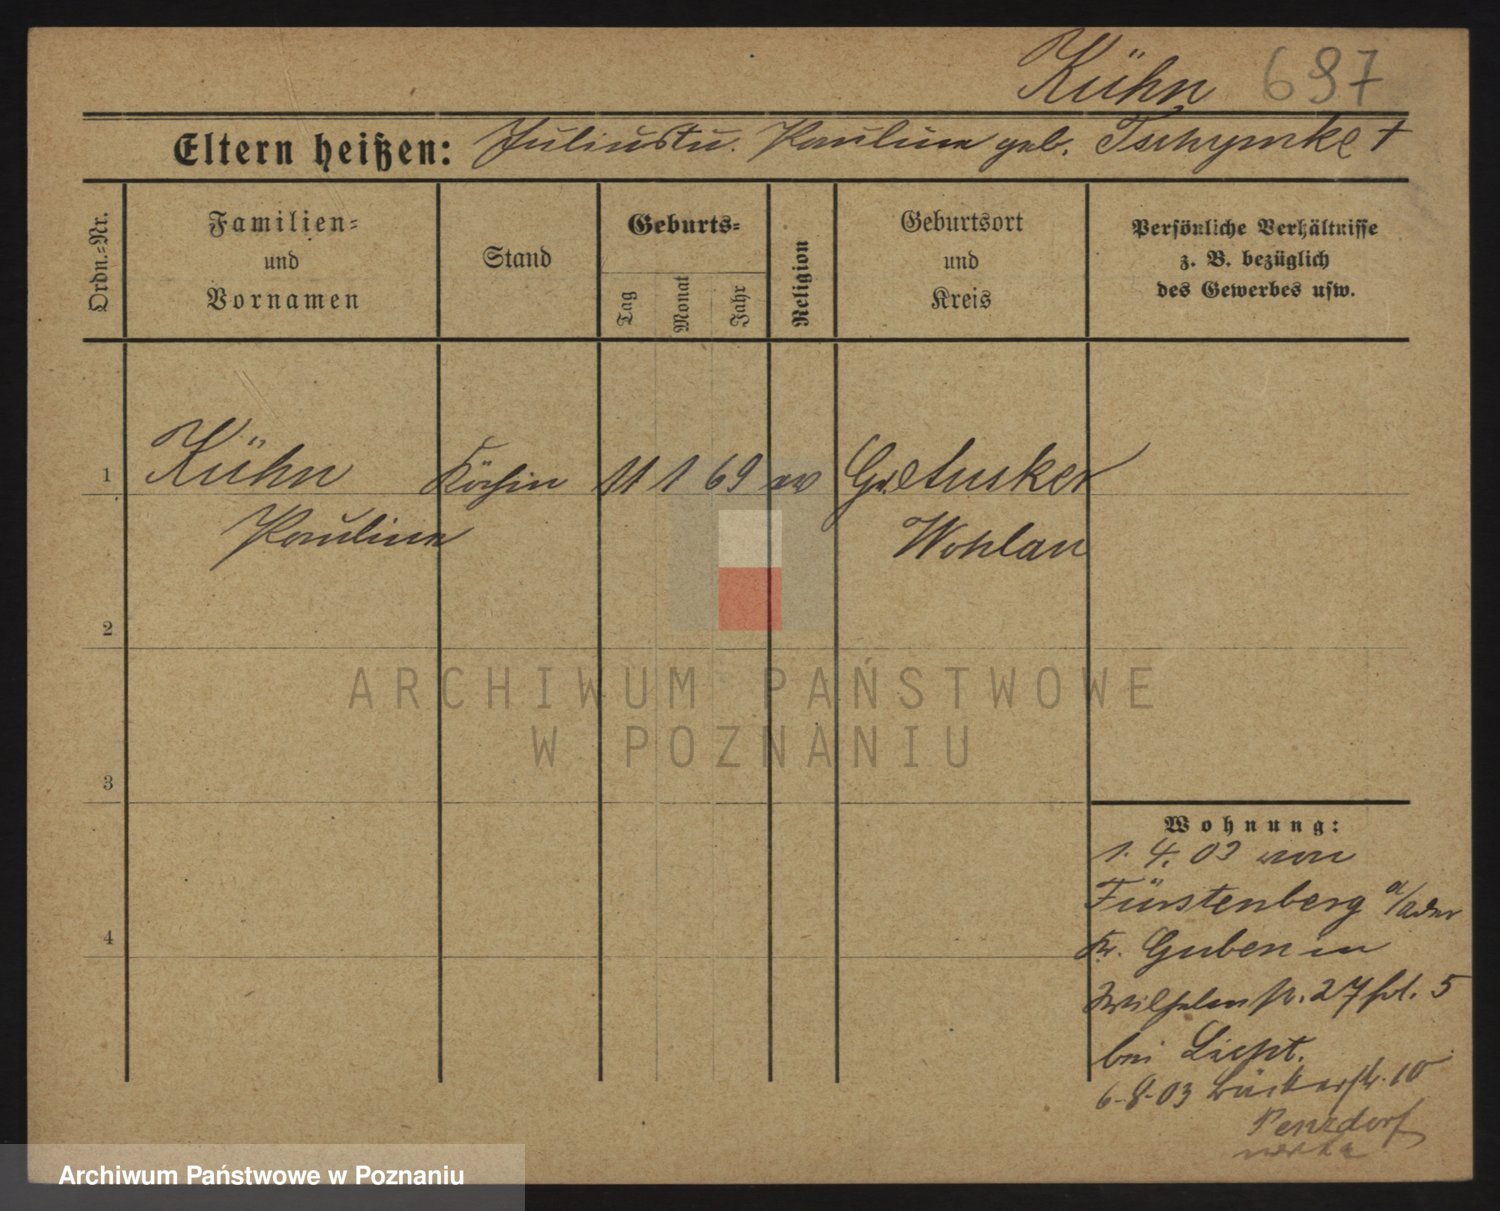 Kühn 697
Eltern heißen: Julius u. Pauline geb. Tschymke †
Ordn.-Nr.
Familien-
und
Vornamen
Stand
Geburts-
Tag
Monat
Jahr
Religion
Geburtsort
und
Kreis
Persönliche Verhältnisse
z. B. bezüglich
des Gewerbes usw.
1 Kühn Köchin 11 1 69 ev
Pauline Wohlau
2
3
4
ARCHIWUM PAŃSTWOWE
W POZNANIU
Wohnung:
1. 4. 03 von
Fürstenberg a/Oder
Kr. Guben in
Wilhelmstr. 27 5
bei Licht.
6-8-03 Bäckerstr. 10
Archiwum Państwowe w Poznaniu